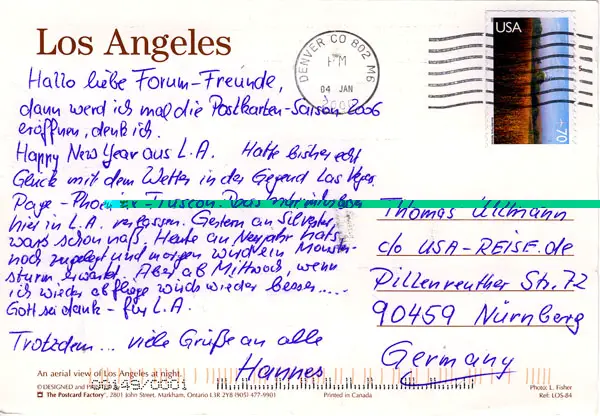 Los Angeles
DENVER CO 802 M6
PM
04 JAN
USA
70
Hallo liebe Forum-Freunde,
dann werd ich mal die Postkarten-Saison 2006
eröffnen, denk ich.
Happy New Year aus L.A. Hatte bisher echt
Glück mit dem Wetter in der Gegend Las Vegas
Page - Phoenix - Tuscon. Dass
hier in L.A. verlassen. Gestern an Silvester
wars schon naß, Heute an Neujahr hats
noch zugelegt und morgen wird ein Monster-
sturm erwartet. Aber ab Mittwoch, wenn
ich wieder abfliege wirds wieder besser.....
Gott sei dank - für L.A.
Trotzdem... viele Grüße an alle
Hannes
Thomas Ullmann
c/o USA-REISE.de
Pillenreuther Str. 72
90459 Nürnberg
Germany
An aerial view of Los Angeles at night.
© DESIGNED and
08149/0001
The Postcard Factory, 2801 John Street, Markham, Ontario L3R 2Y8 (905) 477-9901
Printed in Canada
Photo: L. Fisher
Ref: LOS-84